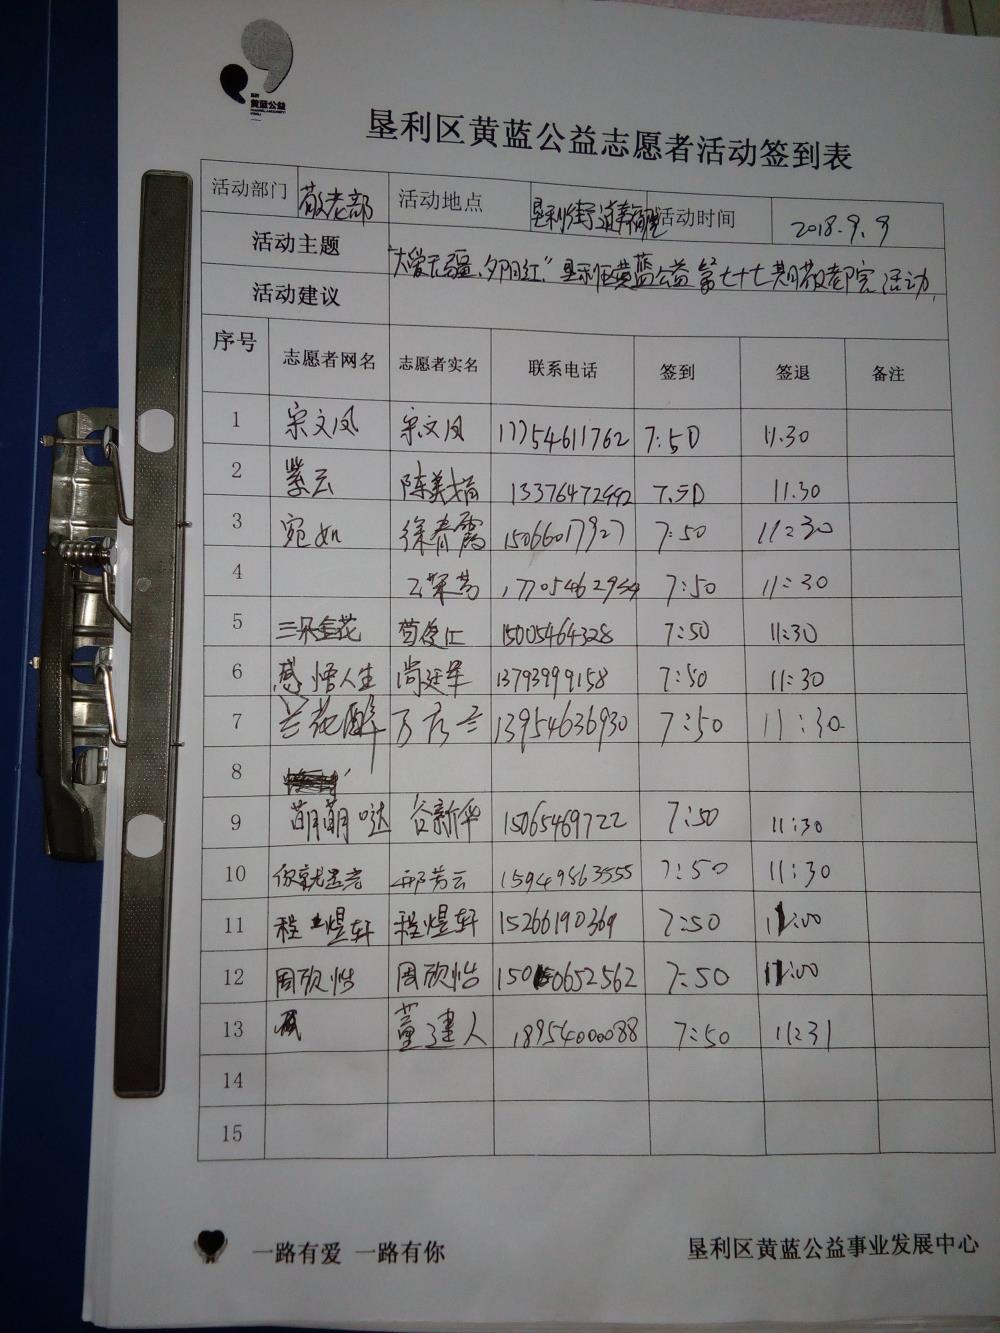 黄蓝公益
垦利区黄蓝公益志愿者活动签到表
活动部门 敬老部 活动地点 垦利街道 活动时间 2018.9.9
活动主题 "大爱无疆、夕阳红"垦利区黄蓝公益第七十七期敬老院活动.
活动建议
序号 志愿者网名 志愿者实名 联系电话 签到 签退 备注
1 宋文凤 宋文凤 17754611762 7:50 11.30
2 紫云 陈美娟 7.50 11.30
3 宛如 徐春霞 15066017927 7:50 11:30
4 7:50 11:30
5 三朵金花 15005464328 7:50 11:30
6 感悟人生 尚廷军 13793999158 7:50 11:30
7 兰花醉 13954636930 7:50 11:30
8
9 萌萌哒 谷新华 15065469722 7:50 11:30
10 你就是 15949863555 7:50 11:30
11 程煜轩 程煜轩 15266190369 7:50 11:00
12 周欣怡 周欣怡 7:50 11:00
13 董建人 18954000088 7:50 11:31
14
15
一路有爱 一路有你 垦利区黄蓝公益事业发展中心